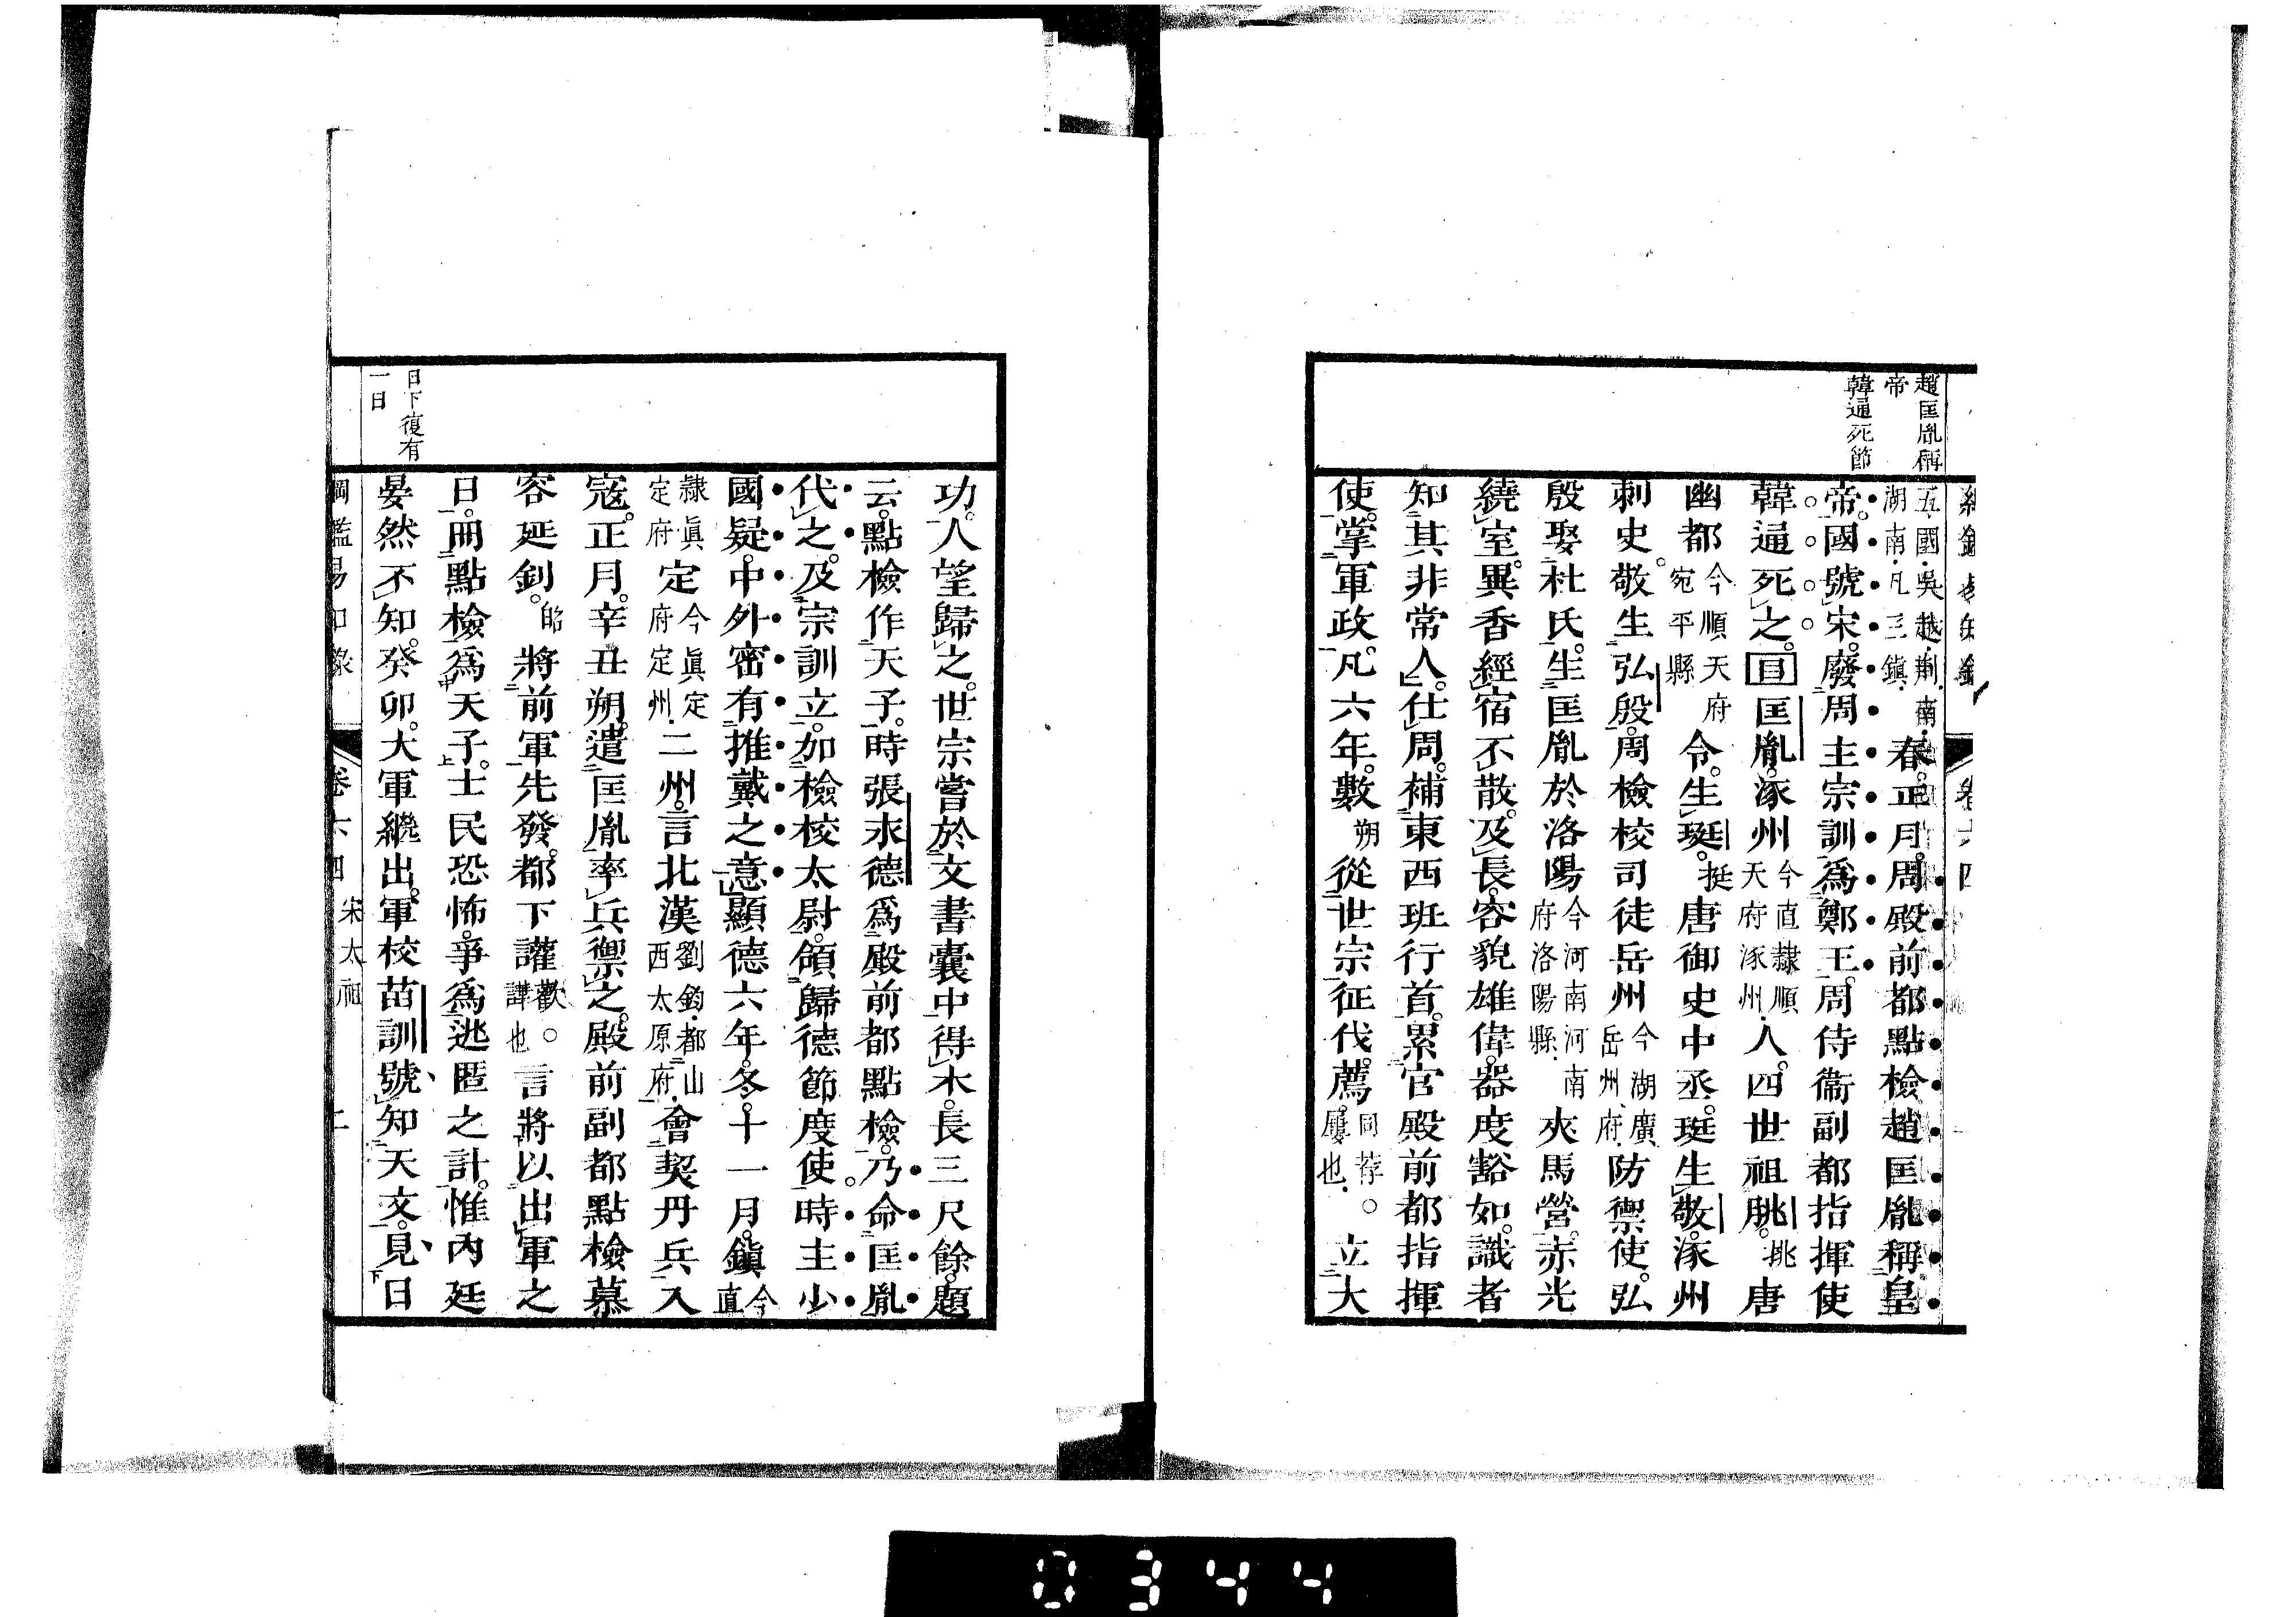 趙匡胤稱
帝
韓通死節
五國吳越荆南
湖南凡三鎮
春。正月。周殿前都點檢趙匡胤稱皇
帝。國號宋。廢周主宗訓爲鄭王。周侍衞副都指揮使
韓通死之。目匡胤。涿州今直隸順天府涿州人。四世祖朓。挑唐
幽都今順天府宛平縣令。生珽。挺唐御史中丞。珽生敬。涿州
刺史。敬生弘殷。周檢校司徒岳州今湖廣岳州府防禦使。弘
殷娶杜氏。生匡胤於洛陽今河南河南府洛陽縣夾馬營。赤光
繞室。異香經宿不散。及長。容貌雄偉。器度豁如。識者
知其非常人。仕周。補東西班行首。累官殿前都指揮
使。掌軍政。凡六年。數朔從世宗征伐。薦同荐。屢也立大
功。人望歸之。世宗嘗於文書囊中得木。長三尺餘。題
云。點檢作天子。時張永德爲殿前都點檢。乃命匡胤
代之。及宗訓立。加檢校太尉。領歸德節度使。時主少
國疑。中外密有推戴之意。顯德六年。冬。十一月。鎭今直
隸眞定府定今眞定府定州二州。言北漢劉鈞都山西太原府會契丹兵入
寇。正月。辛丑朔。遣匡胤率兵禦之。殿前副都點檢慕
容延釗。昭將前軍先發。都下讙歡。譁也言將以出軍之
日。冊點檢爲天子。士民恐怖。爭爲逃匿之計。惟內廷
晏然不知。癸卯。大軍繼出。軍校苗訓號知天文。見日
日下復有
一日
綱鑑易知錄 卷六四 宋太祖
0344